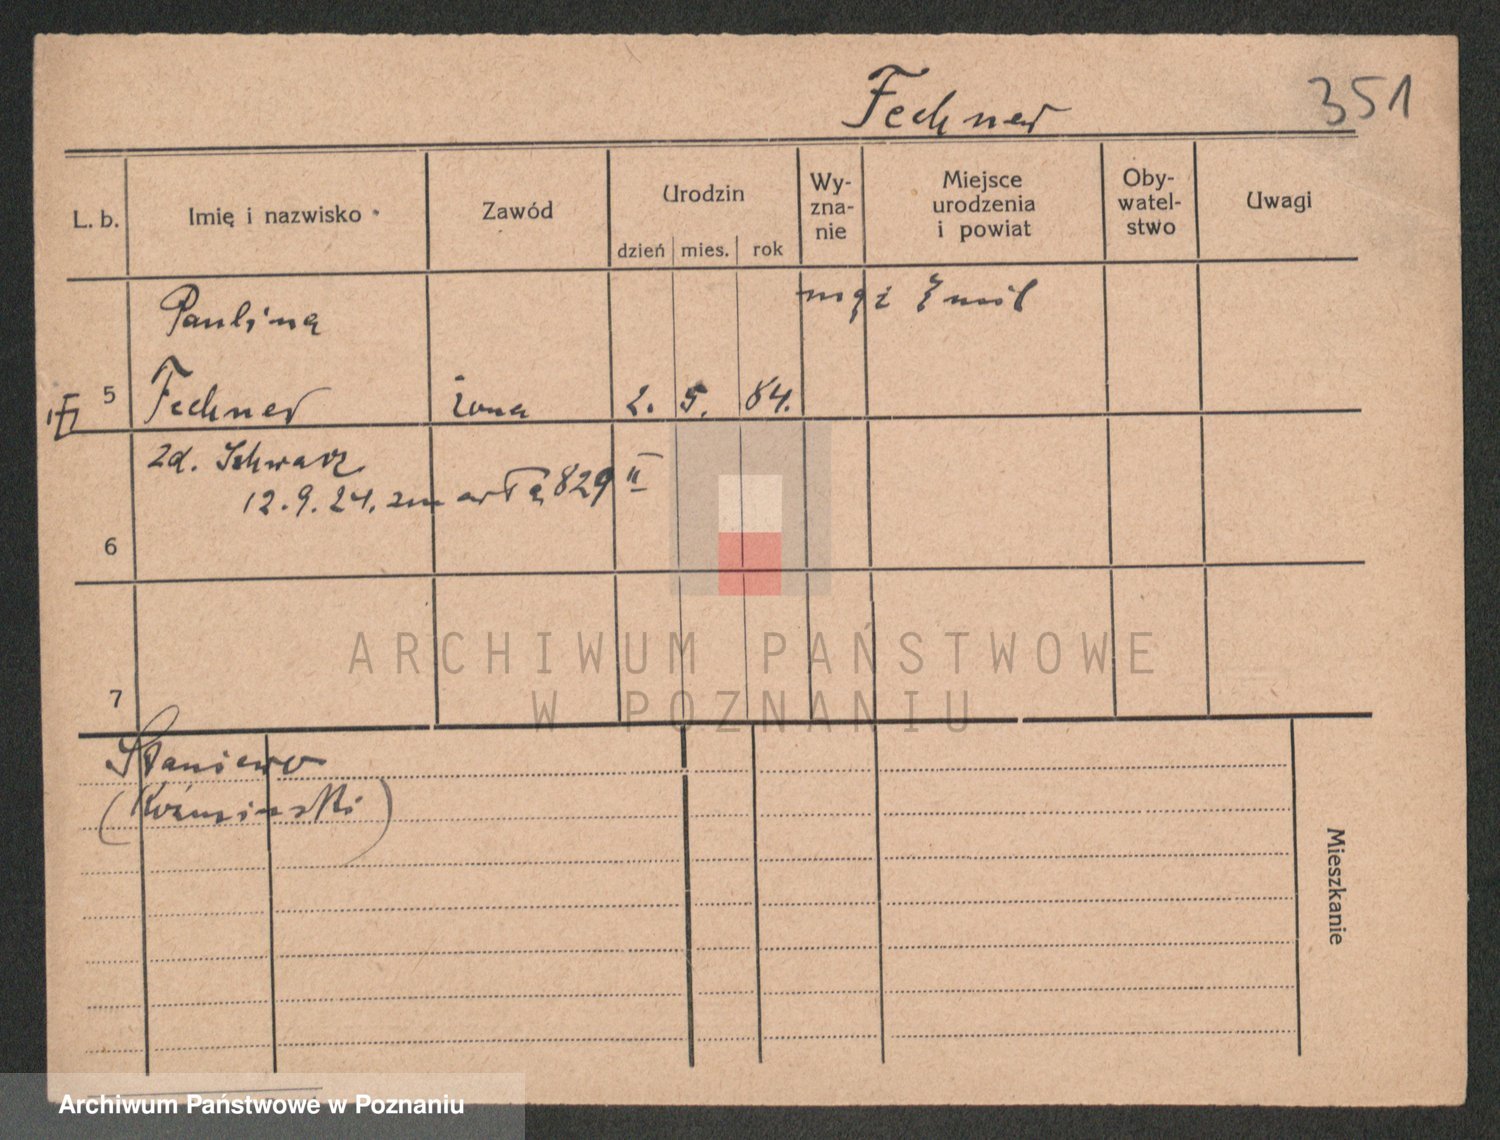 Fechner 351
L. b. Imię i nazwisko Zawód Urodzin Wy-zna-nie Miejsce urodzenia i powiat Oby-watel-stwo Uwagi
dzień mies. rok
Paulina mąż Emil
5 Fechner żona 2. 5. 84.
zd. Schwarz
12.9.24. zmarła 829 II
6
7
Staniewo
(Koźmiński)
Mieszkanie
ARCHIWUM PAŃSTWOWE
W POZNANIU
Archiwum Państwowe w Poznaniu